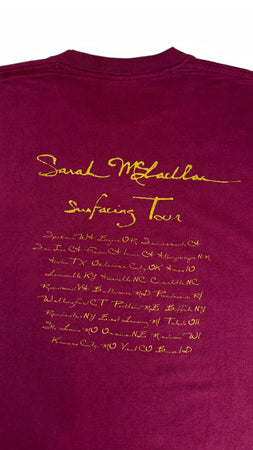 Sarah McLachlan
Surfacing Tour
Spokane WA Eugene OR Sacramento CA
San CA CA Albuquerque NM
TX Oklahoma City, OK IO
Louisville KY Asheville NC NC
Richmond VA Baltimore MD Providence RI
Wallingford CT Portland ME Buffalo NY
Rochester NY East Lansing MI Toledo OH
St. Louis MO Omaha NE Madison WI
Kansas City, MO Vail CO Boise ID